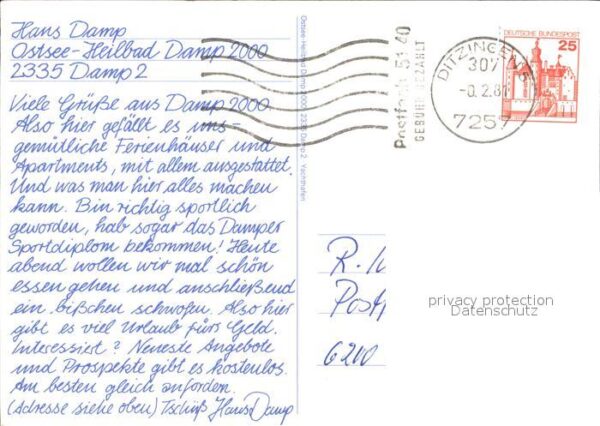 Hans Damp
Ostsee-Heilbad Damp 2000
2335 Damp 2
Viele Grüße aus Damp 2000
Also hier gefällt es uns-
gemütliche Ferienhäuser und
Apartments, mit allem ausgestattet.
Und was man hier alles machen
kann. Bin richtig sportlich
geworden, hab sogar das Damper
Sportdiplom bekommen! Heute
abend wollen wir mal schön
essen gehen und anschließend
ein bißchen schwofen. Also hier
gibt es viel Urlaub fürs Geld.
Interessiert? Neueste Angebote
und Prospekte gibt es kostenlos.
Am besten gleich anfordern.
(Adresse siehe oben) Tschüß Hans Damp
Ostsee-Heilbad Damp 2000, 2335 Damp 2 Yachthafen
Postfach 51 40
GEBÜHR BEZAHLT
DITZINGEN 5
307
2.81
7257
DEUTSCHE BUNDESPOST
25
R.
Post
6200
privacy protection
Datenschutz